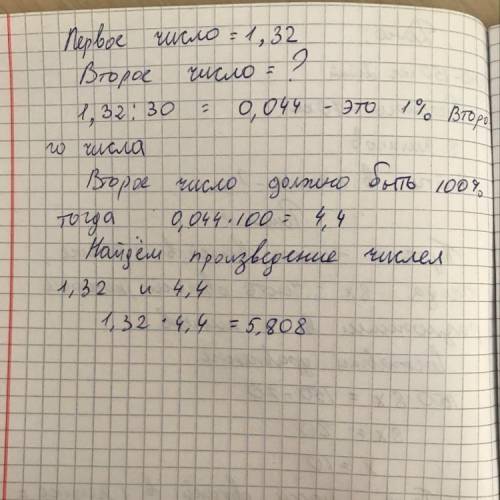 Первое число = 1,32
Второе число = ?
1,32 : 30 = 0,044 - это 1% второ
го числа
Второе число должно быть 100%
тогда 0,044 · 100 = 4,4
Найдём произведение числел
1,32 и 4,4
1,32 · 4,4 = 5,808